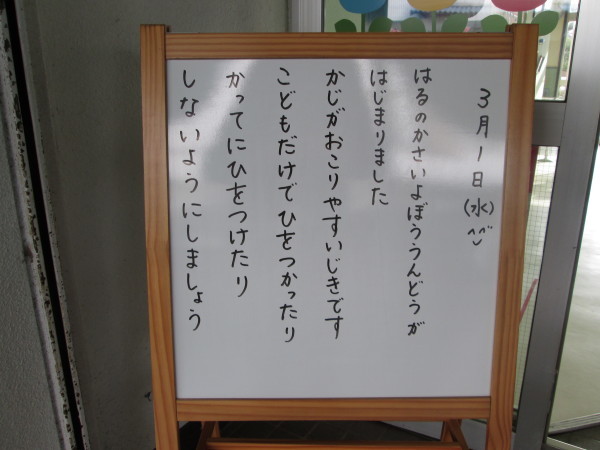 3月1日(水)^^
はるのかさいよぼううんどうが
はじまりました
かじがおこりやすいじきです
こどもだけでひをつかったり
かってにひをつけたり
しないようにしましょう